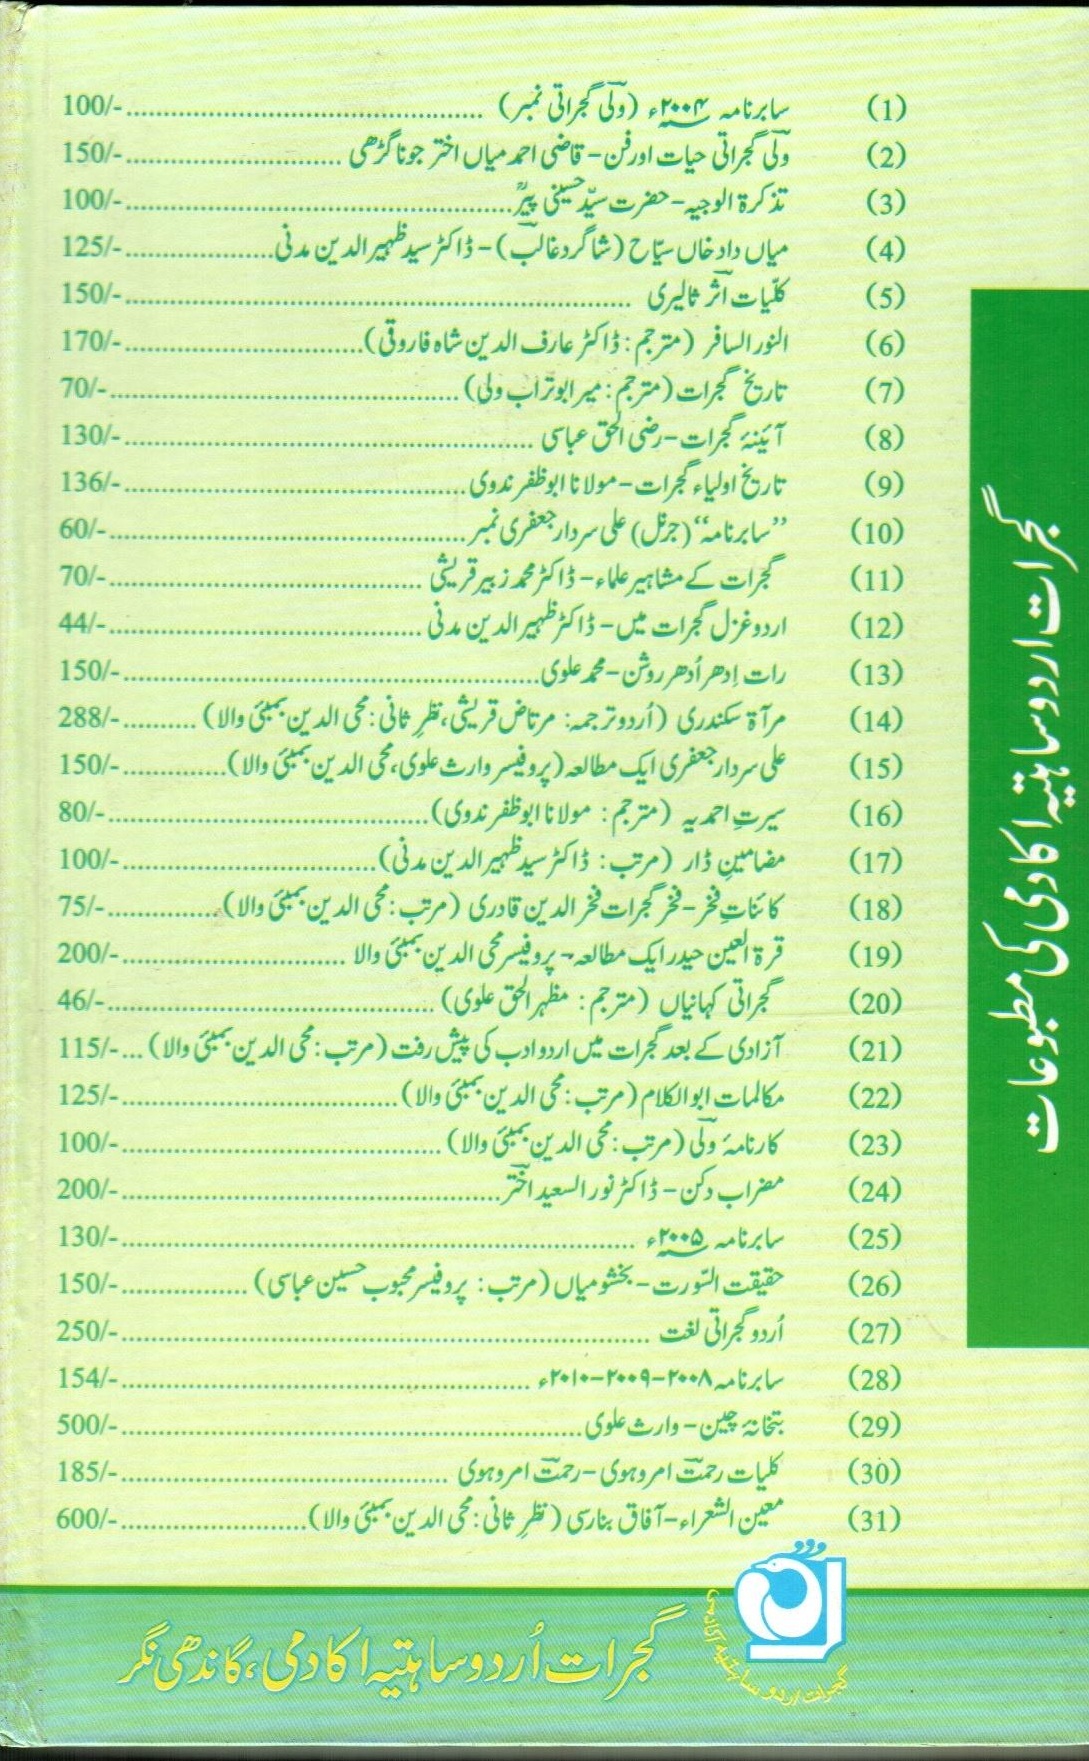 (1) سابرنامہ ۲۰۰۴ء (ولی گجراتی نمبر) ........ 100/-
(2) ولی گجراتی حیات اور فن - قاضی احمد میاں اختر جوناگڑھی ........ 150/-
(3) تذکرۃ الوجیہ - حضرت سیّد حسینی پیرؒ ........ 100/-
(4) میاں داد خاں سیّاح (شاگردِ غالب) - ڈاکٹر سید ظہیر الدین مدنی ........ 125/-
(5) کلّیات اثر ثالیری ........ 150/-
(6) النور السافر (مترجم: ڈاکٹر عارف الدین شاہ فاروقی) ........ 170/-
(7) تاریخ گجرات (مترجم: میر ابوتراب ولی) ........ 70/-
(8) آئینۂ گجرات - رضی الحق عباسی ........ 130/-
(9) تاریخ اولیاء گجرات - مولانا ابوظفر ندوی ........ 136/-
(10) ”سابرنامہ“ (جرنل) علی سردار جعفری نمبر ........ 60/-
(11) گجرات کے مشاہیر علماء - ڈاکٹر محمد زبیر قریشی ........ 70/-
(12) اردو غزل گجرات میں - ڈاکٹر ظہیر الدین مدنی ........ 44/-
(13) رات اِدھر اُدھر روشن - محمد علوی ........ 150/-
(14) مرآۃ سکندری (اُردو ترجمہ: مرتاض قریشی، نظرِ ثانی: محی الدین بمبئی والا) ........ 288/-
(15) علی سردار جعفری ایک مطالعہ (پروفیسر وارث علوی، محی الدین بمبئی والا) ........ 150/-
(16) سیرتِ احمدیہ (مترجم: مولانا ابوظفر ندوی) ........ 80/-
(17) مضامینِ ڈار (مرتب: ڈاکٹر سید ظہیر الدین مدنی) ........ 100/-
(18) کائناتِ فخر - فخر گجرات فخر الدین قادری (مرتب: محی الدین بمبئی والا) ........ 75/-
(19) قرۃ العین حیدر ایک مطالعہ - پروفیسر محی الدین بمبئی والا ........ 200/-
(20) گجراتی کہانیاں (مترجم: مظہر الحق علوی) ........ 46/-
(21) آزادی کے بعد گجرات میں اردو ادب کی پیش رفت (مرتب: محی الدین بمبئی والا) ... 115/-
(22) مکالمات ابوالکلام (مرتب: محی الدین بمبئی والا) ........ 125/-
(23) کارنامۂ ولی (مرتب: محی الدین بمبئی والا) ........ 100/-
(24) مضراب دکن - ڈاکٹر نور السعید اختر ........ 200/-
(25) سابرنامہ ۲۰۰۵ء ........ 130/-
(26) حقیقت السّورت - بخشو میاں (مرتب: پروفیسر محبوب حسین عباسی) ........ 150/-
(27) اُردو گجراتی لغت ........ 250/-
(28) سابرنامہ ۲۰۰۸-۲۰۰۹-۲۰۱۰ء ........ 154/-
(29) بتخانۂ چین - وارث علوی ........ 500/-
(30) کلیات رحمت امروہوی - رحمت امروہوی ........ 185/-
(31) معین الشعراء - آفاق بنارسی (نظرِ ثانی: محی الدین بمبئی والا) ........ 600/-
گجرات اردو ساہتیہ اکادمی کی مطبوعات
گجرات اردو ساہتیہ اکادمی
گجرات اُردو ساہتیہ اکادمی، گاندھی نگر